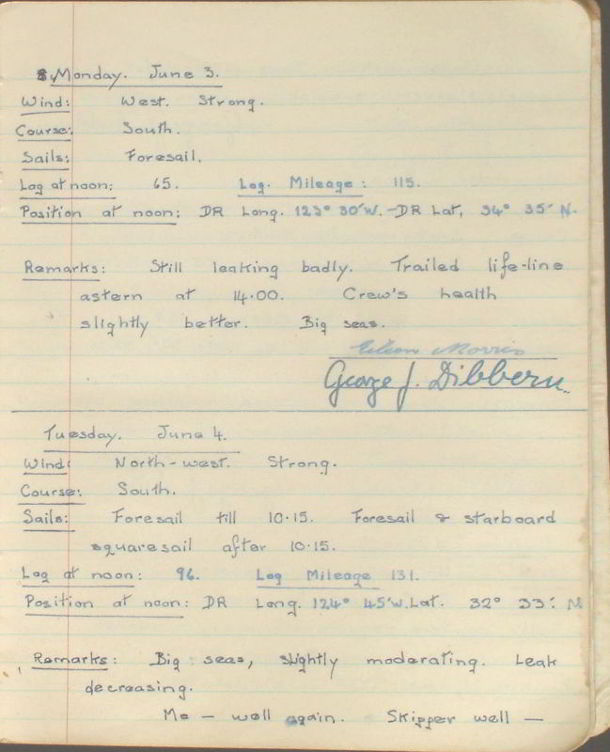 Monday. June 3.
Wind: West. Strong.
Course: South.
Sails: Foresail.
Log at noon: 65. Log. Mileage: 115.
Position at noon: DR Long. 123° 30'W. - DR Lat, 34° 35' N.
Remarks: Still leaking badly. Trailed life-line
astern at 14.00. Crew's health
slightly better. Big seas.
Eileen Morris
George J. Dibbern.
Tuesday. June 4.
Wind: North-west. Strong.
Course: South.
Sails: Foresail till 10.15. Foresail & starboard
squaresail after 10.15.
Log at noon: 96. Log Mileage 131.
Position at noon: DR Long. 124° 45'W. Lat. 32° 33'. N
Remarks: Big seas, slightly moderating. Leak
decreasing.
Me — well again. Skipper well —